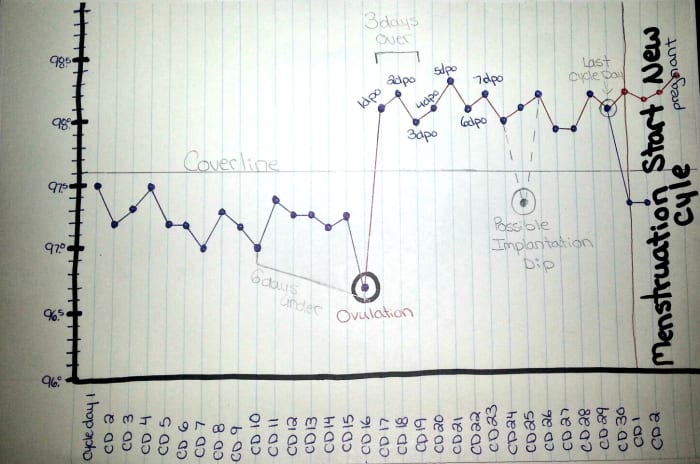 3 days
over
98.5
98.0
97.5
97.0
96.5
96.0
Coverline
1dpo
2dpo
3dpo
4dpo
5dpo
6dpo
7dpo
Last
Cycle Day
6 days
under
Ovulation
Possible
Implantation
Dip
pregnant
Menstruation Start New
Cyle
Cycle day 1
CD 2
CD 3
CD 4
CD 5
CD 6
CD 7
CD 8
CD 9
CD 10
CD 11
CD 12
CD 13
CD 14
CD 15
CD 16
CD 17
CD 18
CD 19
CD 20
CD 21
CD 22
CD 23
CD 24
CD 25
CD 26
CD 27
CD 28
CD 29
CD 30
CD 1
CD 2